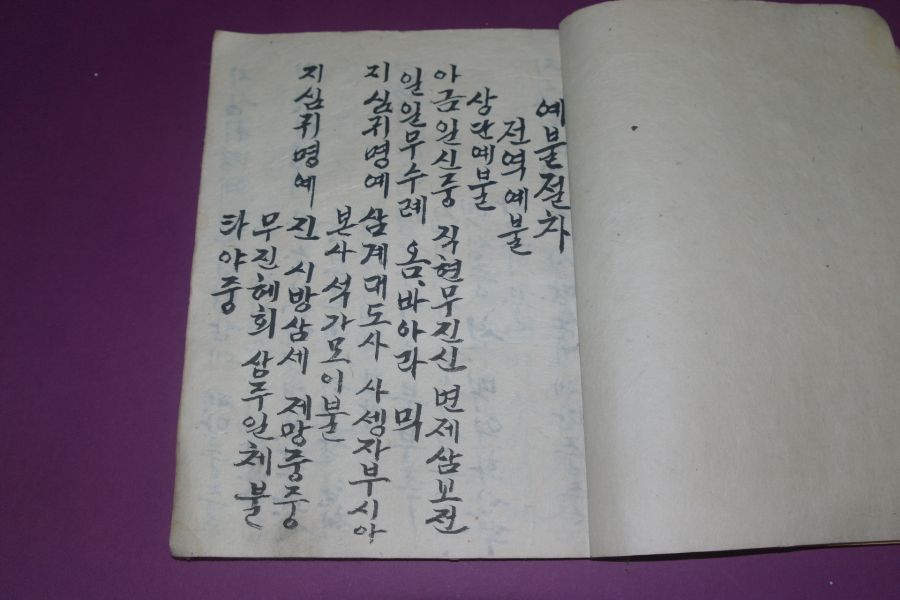 예불절차
전역예불
상단예불
아금일신중 직현무진신 변제삼보전
일일무수례 옴, 바아라 믹
지심귀명예 삼계대도사 사생자부시아
본사 석가모이불
지심귀명예 진 시방삼세 제망중중
무진혜회 상주일체불
타야중